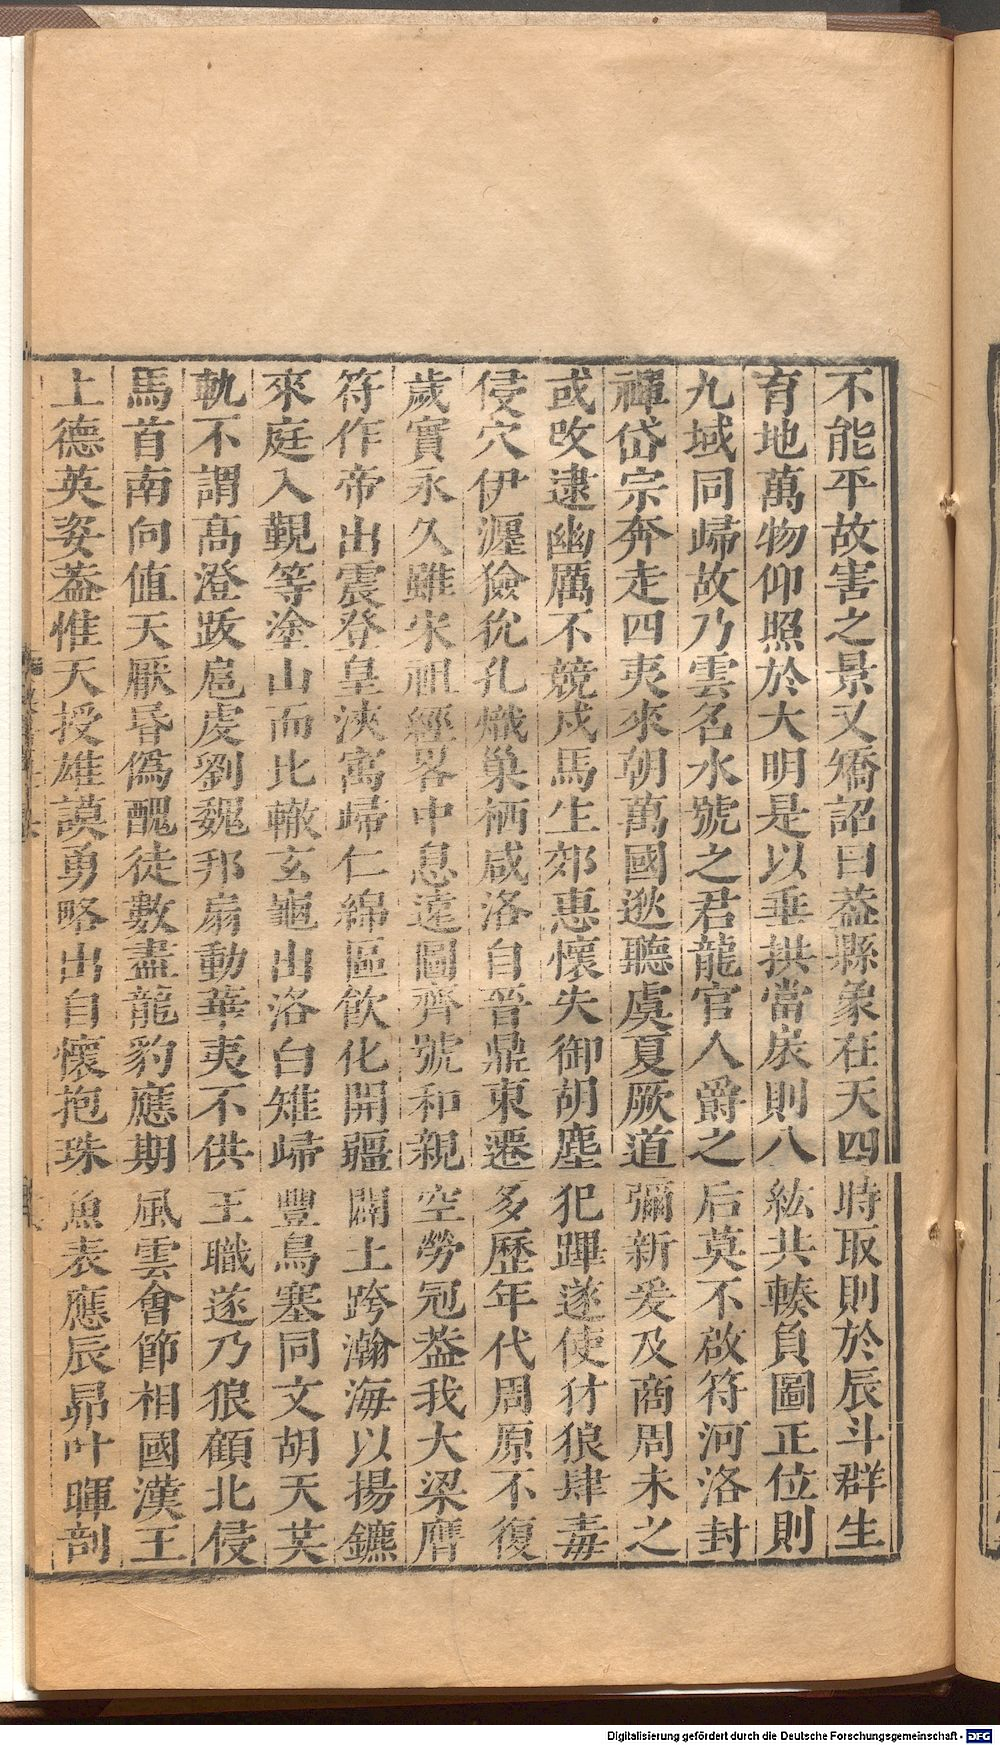 不能平故害之景又矯詔曰葢縣象在天四時取則於辰斗群生
育地萬物仰照於大明是以垂拱當扆則八紘共轃負圖正位則
九域同歸故乃雲名水號之君龍官人爵之后莫不啟符河洛封
禪岱宗奔走四夷來朝萬國逖聽虞夏厥道彌新爰及商周未之
或改逮幽厲不競戎馬生郊惠懷失御胡塵犯蹕遂使豺狼肆毒
侵穴伊瀍獫狁孔熾巢栖咸洛自晉鼎東遷多歷年代周原不復
歲實永久雖宋祖經畧中息遠圖齊號和親空勞冠葢我大梁膺
符作帝出震登皇浹寓歸仁綿區飲化開疆闢土跨瀚海以揚鑣
來庭入覲等塗山而比轍玄龜出洛白雉歸豐鳥塞同文胡天共
軌不謂高澄跋扈虔劉魏邦扇動華夷不供王職遂乃狼顧北侵
馬首南向値天厭昬僞醜徒數盡龍豹應期風雲會節相國漢王
上德英姿葢惟天授雄謨勇略出自懷抱珠魚表應辰昴叶暉剖
Digitalisierung gefördert durch die Deutsche Forschungsgemeinschaft - DFG